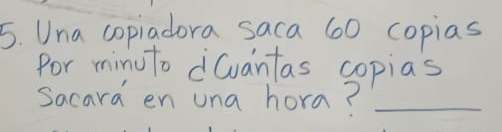 5. Una copiadora saca 60 copias
Por minuto ¿Cuántas copias
Sacará en una hora? ______